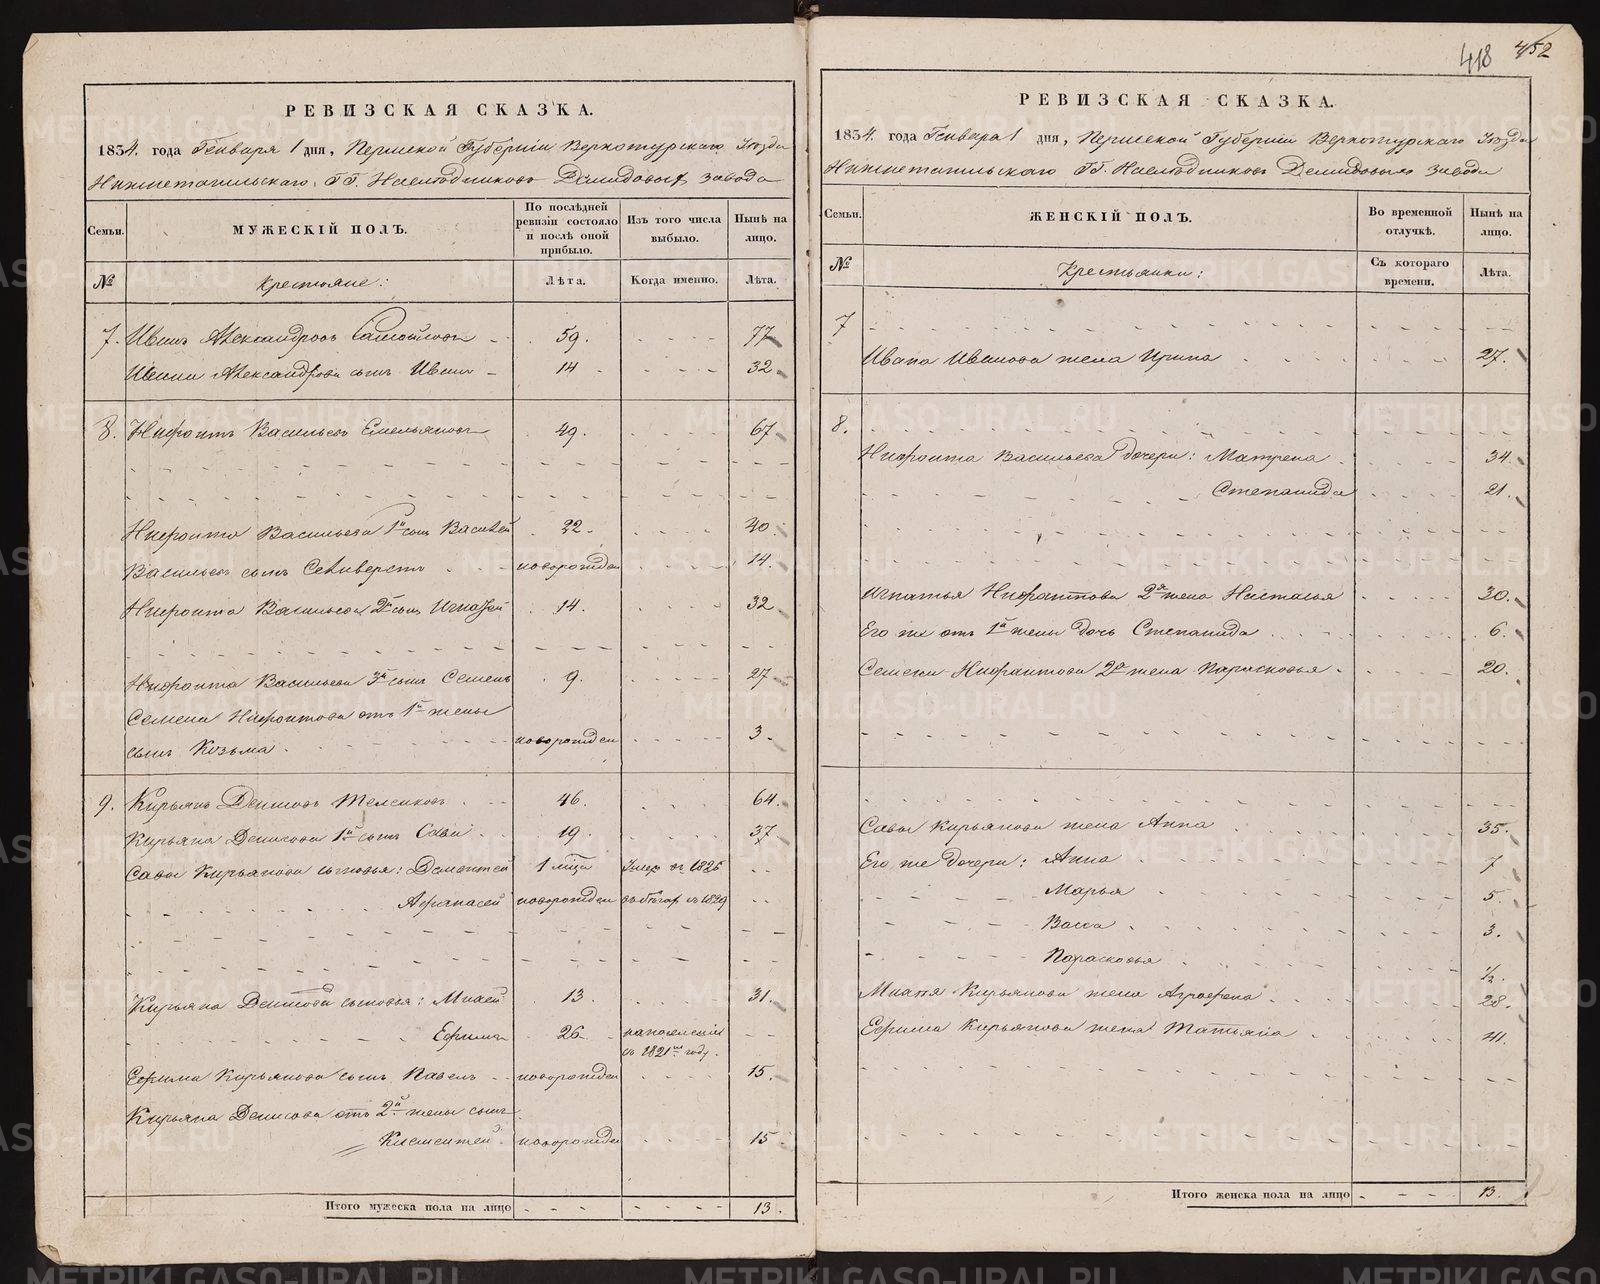 418 452
РЕВИЗСКАЯ СКАЗКА.
1834. года Генваря 1 дня, Пермской Губерніи Верхотурскаго Уѣзда
Нижнетагильскаго ГГ. Наслѣдниковъ Демидовыхъ завода
Семьи. МУЖЕСКІЙ ПОЛЪ. По послѣдней ревизіи состояло и послѣ оной прибыло. Изъ того числа выбыло. Нынѣ на лицо.
№ Крестьяне: Лѣта. Когда именно. Лѣта.
7. Иванъ Александровъ Самойловъ 59. 77
Ивана Александрова сынъ Иванъ 14 32
8. Нифонтъ Васильевъ Емельяновъ 49. 67
Нифонта Васильева 1й сынъ Василей 22. 40
Васильевъ сынъ Селиверстъ новорожден 14.
Нифонта Васильева 2й сынъ Игнатей 14. 32
Нифонта Васильева 3й сынъ Семенъ 9. 27
Семена Нифонтова отъ 1й жены
сынъ Козьма новорожден 3.
9. Кирьянъ Денисовъ 46. 64.
Кирьяна Денисова 1й сынъ Сава 19. 37.
Савы Кирьянова сыновья: Дементей 1 мѣся Умер въ 1826
Афанасей новорожден въ бѣгах съ 1829
Кирьяна Денисова сыновья: Михей 13. 31.
Ефимъ 26 на поселеніи
съ 1821го году.
Ефима Кирьянова сынъ Павелъ новорожден 15.
Кирьяна Денисова отъ 2й жены сынъ
Климентей новорожден 15
Итого мужеска пола на лицо 13.
РЕВИЗСКАЯ СКАЗКА.
1834. года Генваря 1 дня, Пермской Губерніи Верхотурскаго Уѣзда
Нижнетагильскаго ГГ. Наслѣдниковъ Демидовыхъ завода
Семьи. ЖЕНСКІЙ ПОЛЪ. Во временной отлучкѣ. Нынѣ на лицо.
№ Крестьянки: Съ котораго времени. Лѣта.
7
Ивана Иванова жена Ирина 27.
8.
Нифонта Васильева дочери: Матрена 34.
Степанида 21.
Игнатья Нифантова 2я жена Настасья 30.
Его же отъ 1й жены дочь Степанида 6.
Семена Нифантова 2я жена Парасковья 20.
Савы Кирьянова жена Анна 35.
Его же дочери: Анна 7
Марья 5.
Васса 3.
Парасковья 1/2.
Михея Кирьянова жена Аграфена 28.
Ефима Кирьянова жена Татьяна 41.
Итого женска пола на лицо 13.
METRIKI.GASO-URAL.RU